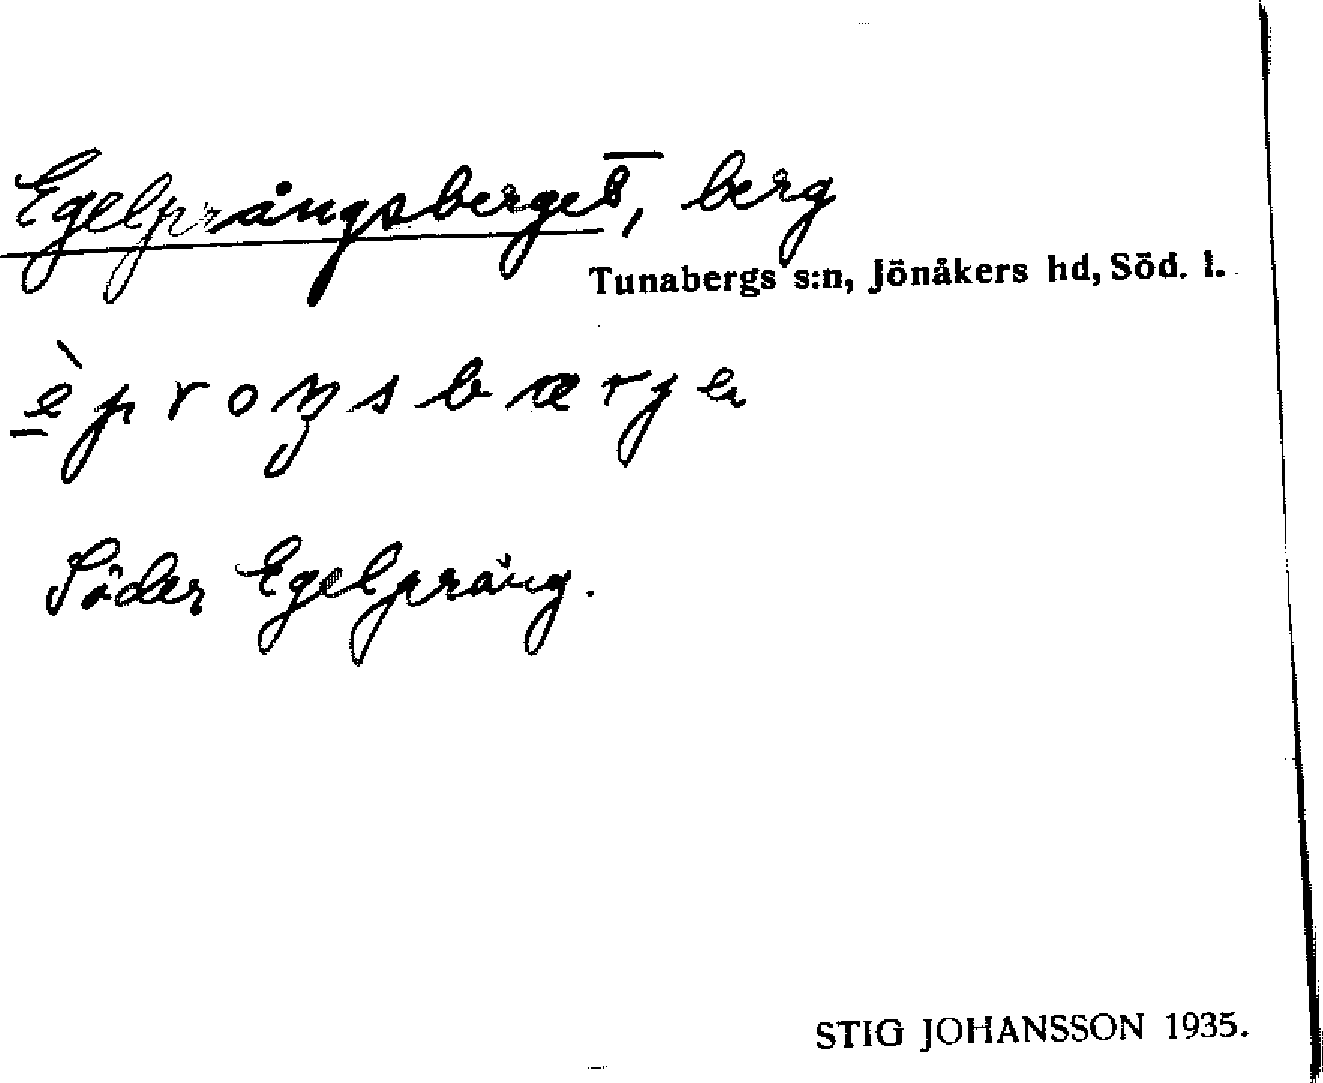 Egelprångsberget, berg
Tunabergs s:n, Jönåkers hd, Söd. l.
Söder Egelpräng.
STIG JOHANSSON 1935.